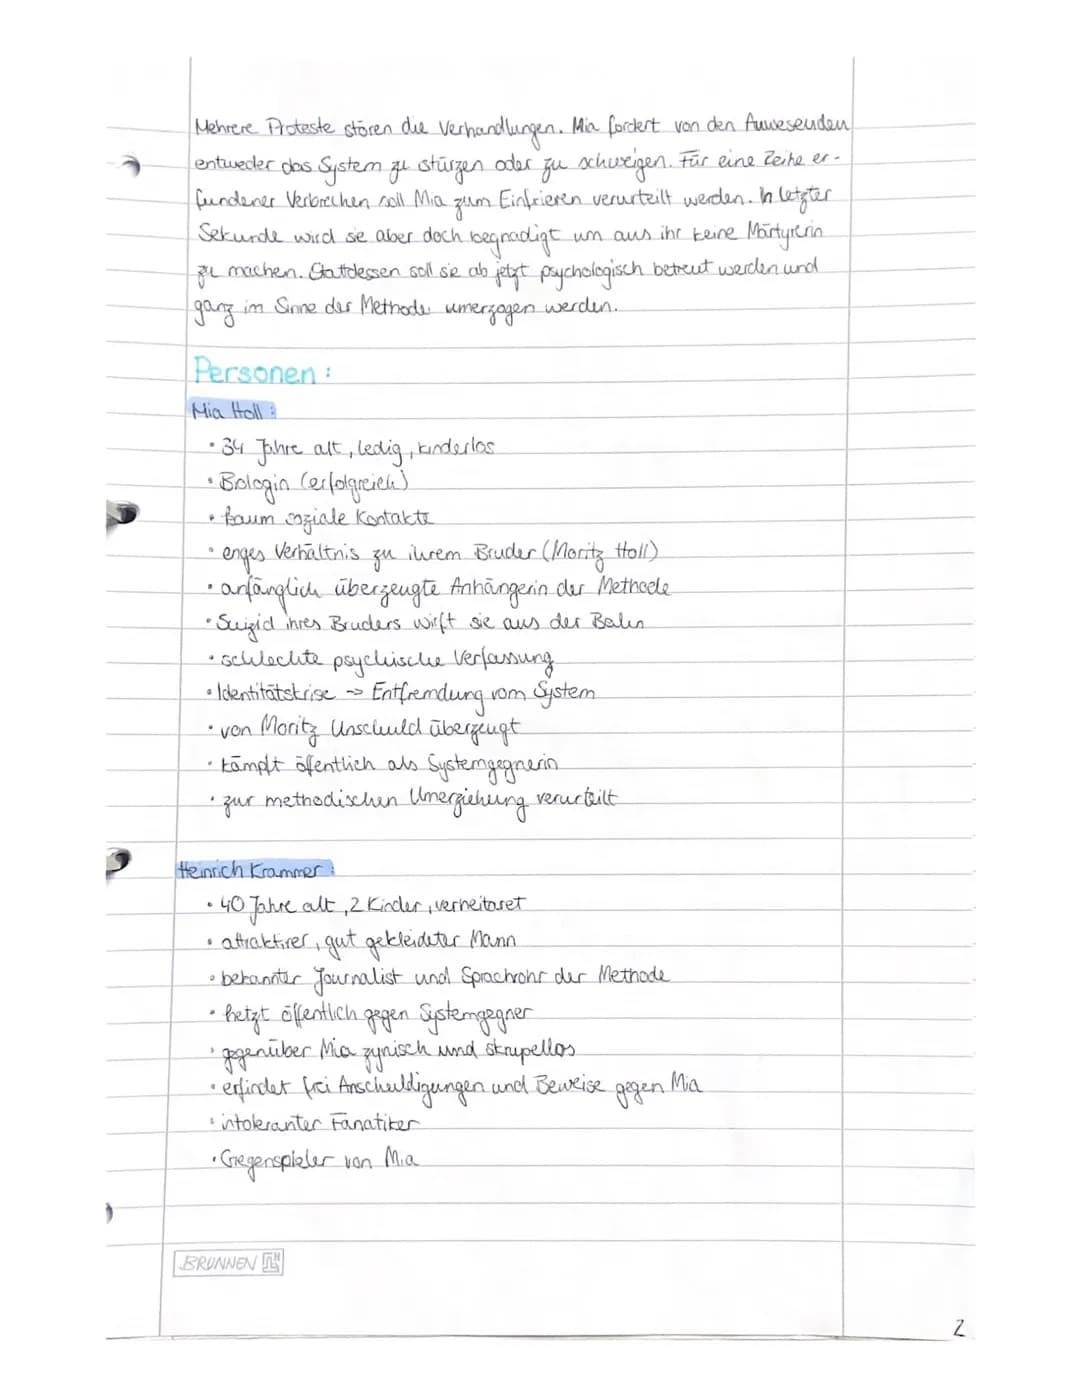 Mehrere Proteste stören die Verhandlungen. Mia fordert von den Anwesenden
entweder das System zu stürzen oder zu schweigen. Für eine Reihe er-
fundener Verbrechen soll Mia zum Einfrieren verurteilt werden. In letzter
Sekunde wird sie aber doch begnadigt um aus ihr keine Märtyrerin
zu machen. Stattdessen soll sie ab jetzt psychologisch betreut werden und
ganz im Sinne der Methode umerzogen werden.
Personen:
Mia Holl:
• 34 Jahre alt, ledig, kinderlos
• Biologin (erfolgreich)
• kaum soziale Kontakte
• enges Verhältnis zu ihrem Bruder (Moritz Holl)
• anfänglich überzeugte Anhängerin der Methode
• Suizid ihres Bruders wirft sie aus der Bahn
• schlechte psychische Verfassung
• Identitätskrise -> Entfremdung vom System
• von Moritz Unschuld überzeugt
• kämpft öffentlich als Systemgegnerin
• zur methodischen Umerziehung verurteilt
Heinrich Krammer:
• 40 Jahre alt, 2 Kinder, verheitaret
• attraktiver, gut gekleideter Mann
• bekannter Journalist und Sprachrohr der Methode
• hetzt öffentlich gegen Systemgegner
• gegenüber Mia zynisch und skrupellos
• erfindet frei Anschuldigungen und Beweise gegen Mia
• intoleranter Fanatiker
• Gegenspieler von Mia
BRUNNEN
2